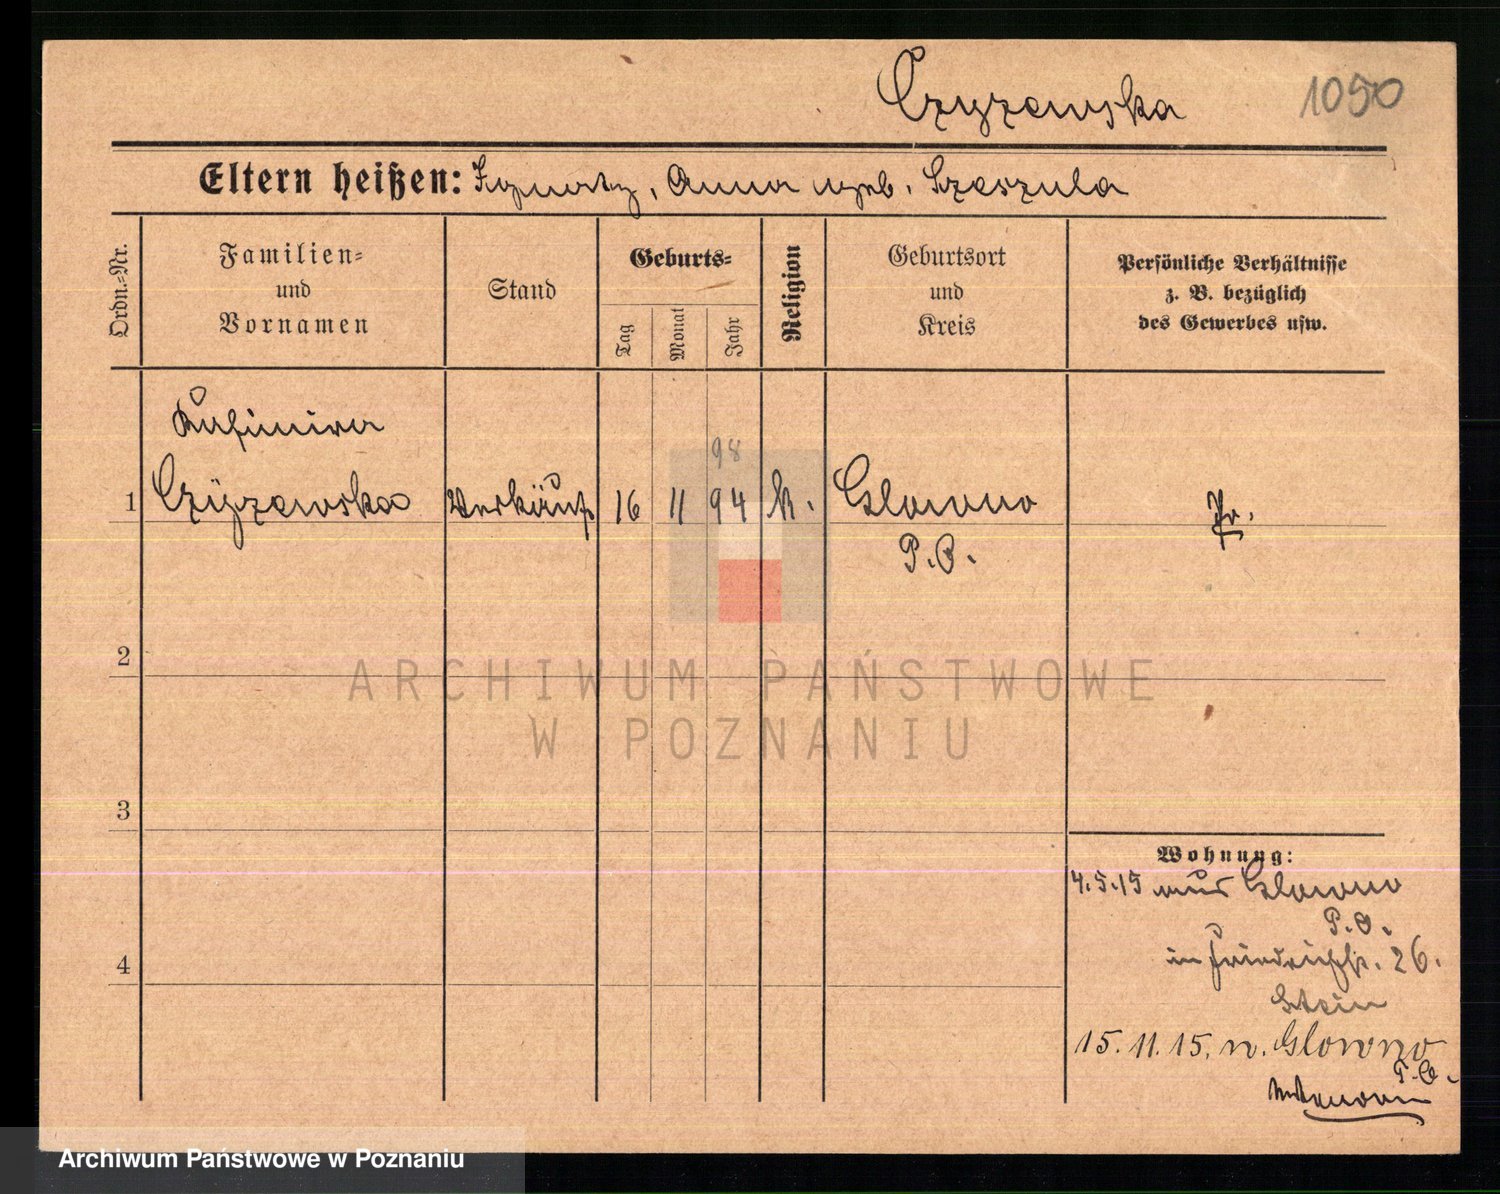 Czyzewska 1050
Eltern heißen: Ignatz, Anna geb. Szeszula
Ordn.-Nr.
Familien-
und
Vornamen
Stand
Geburts-
Tag
Monat
Jahr
Religion
Geburtsort
und
Kreis
Persönliche Verhältnisse
z. B. bezüglich
des Gewerbes usw.
Kasimira
98
1 Czyzewska Verkäuf. 16 11 94 k. Glowno Pr.
P.O.
2
ARCHIWUM PAŃSTWOWE
W POZNANIU
3
4
Wohnung:
4.5.15 aus Glowno
P.O.
in Friedrichstr. 26.
Stein
15.11.15. n. Glowno
P.O.
Archiwum Państwowe w Poznaniu